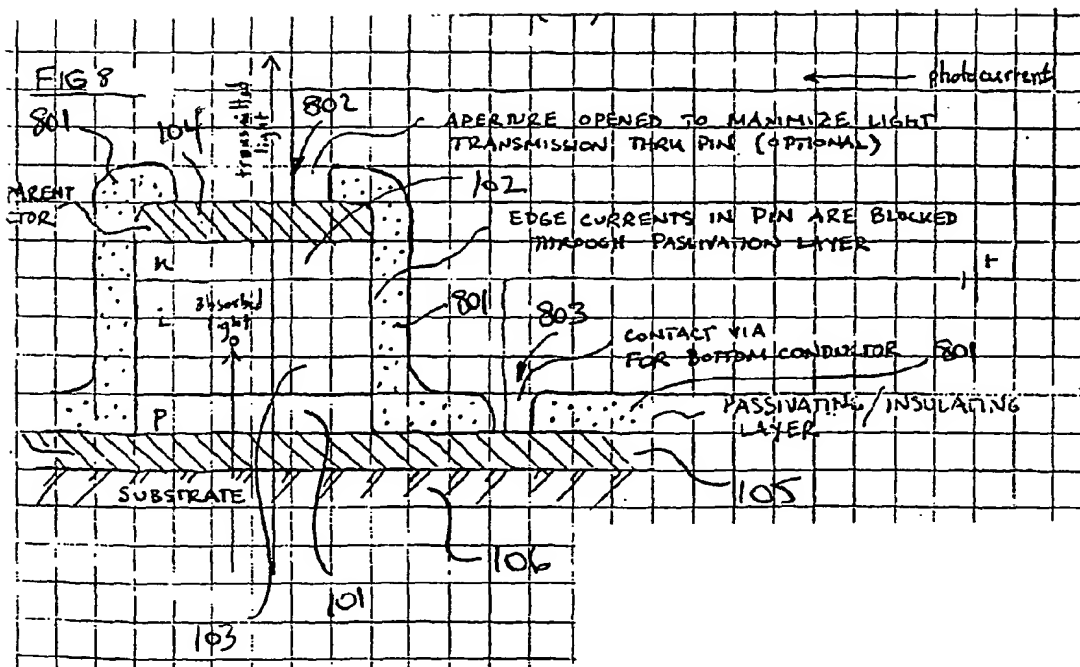 FIG 8
photocurrent
801
104
transmitted
light
802
APERTURE OPENED TO MAXIMIZE LIGHT
TRANSMISSION THRU PIN (OPTIONAL)
102
ARENT
TOR
EDGE CURRENTS IN PIN ARE BLOCKED
THROUGH PASSIVATION LAYER
n
+
i
absorbed
ght
801
803
CONTACT VIA
FOR BOTTOM CONDUCTOR
801
P
PASSIVATING/INSULATING
LAYER
SUBSTRATE
105
106
101
103